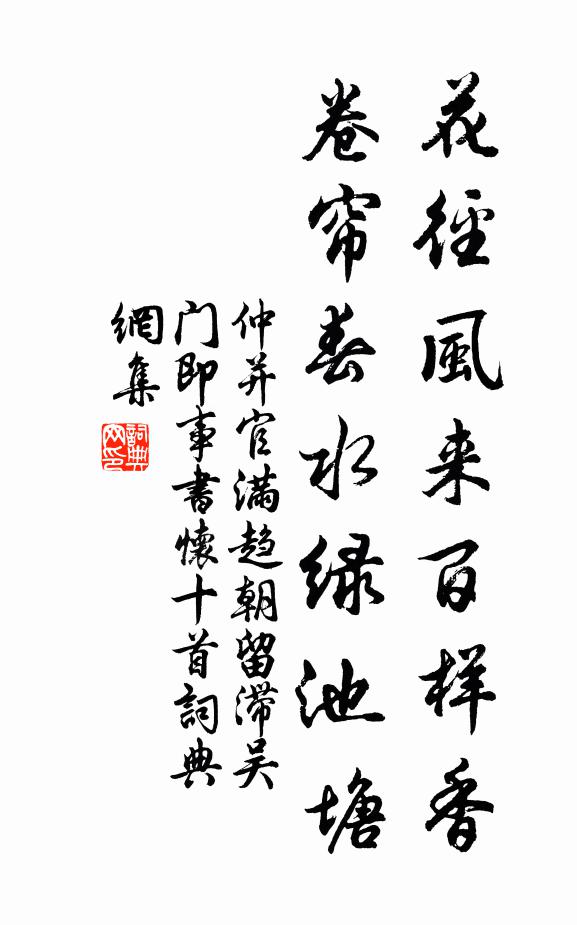 花徑風来百样香
卷帘春水绿池塘
仲并官满趋朝留滞吴
门即事書懷十首詞典
網集
詞典网印